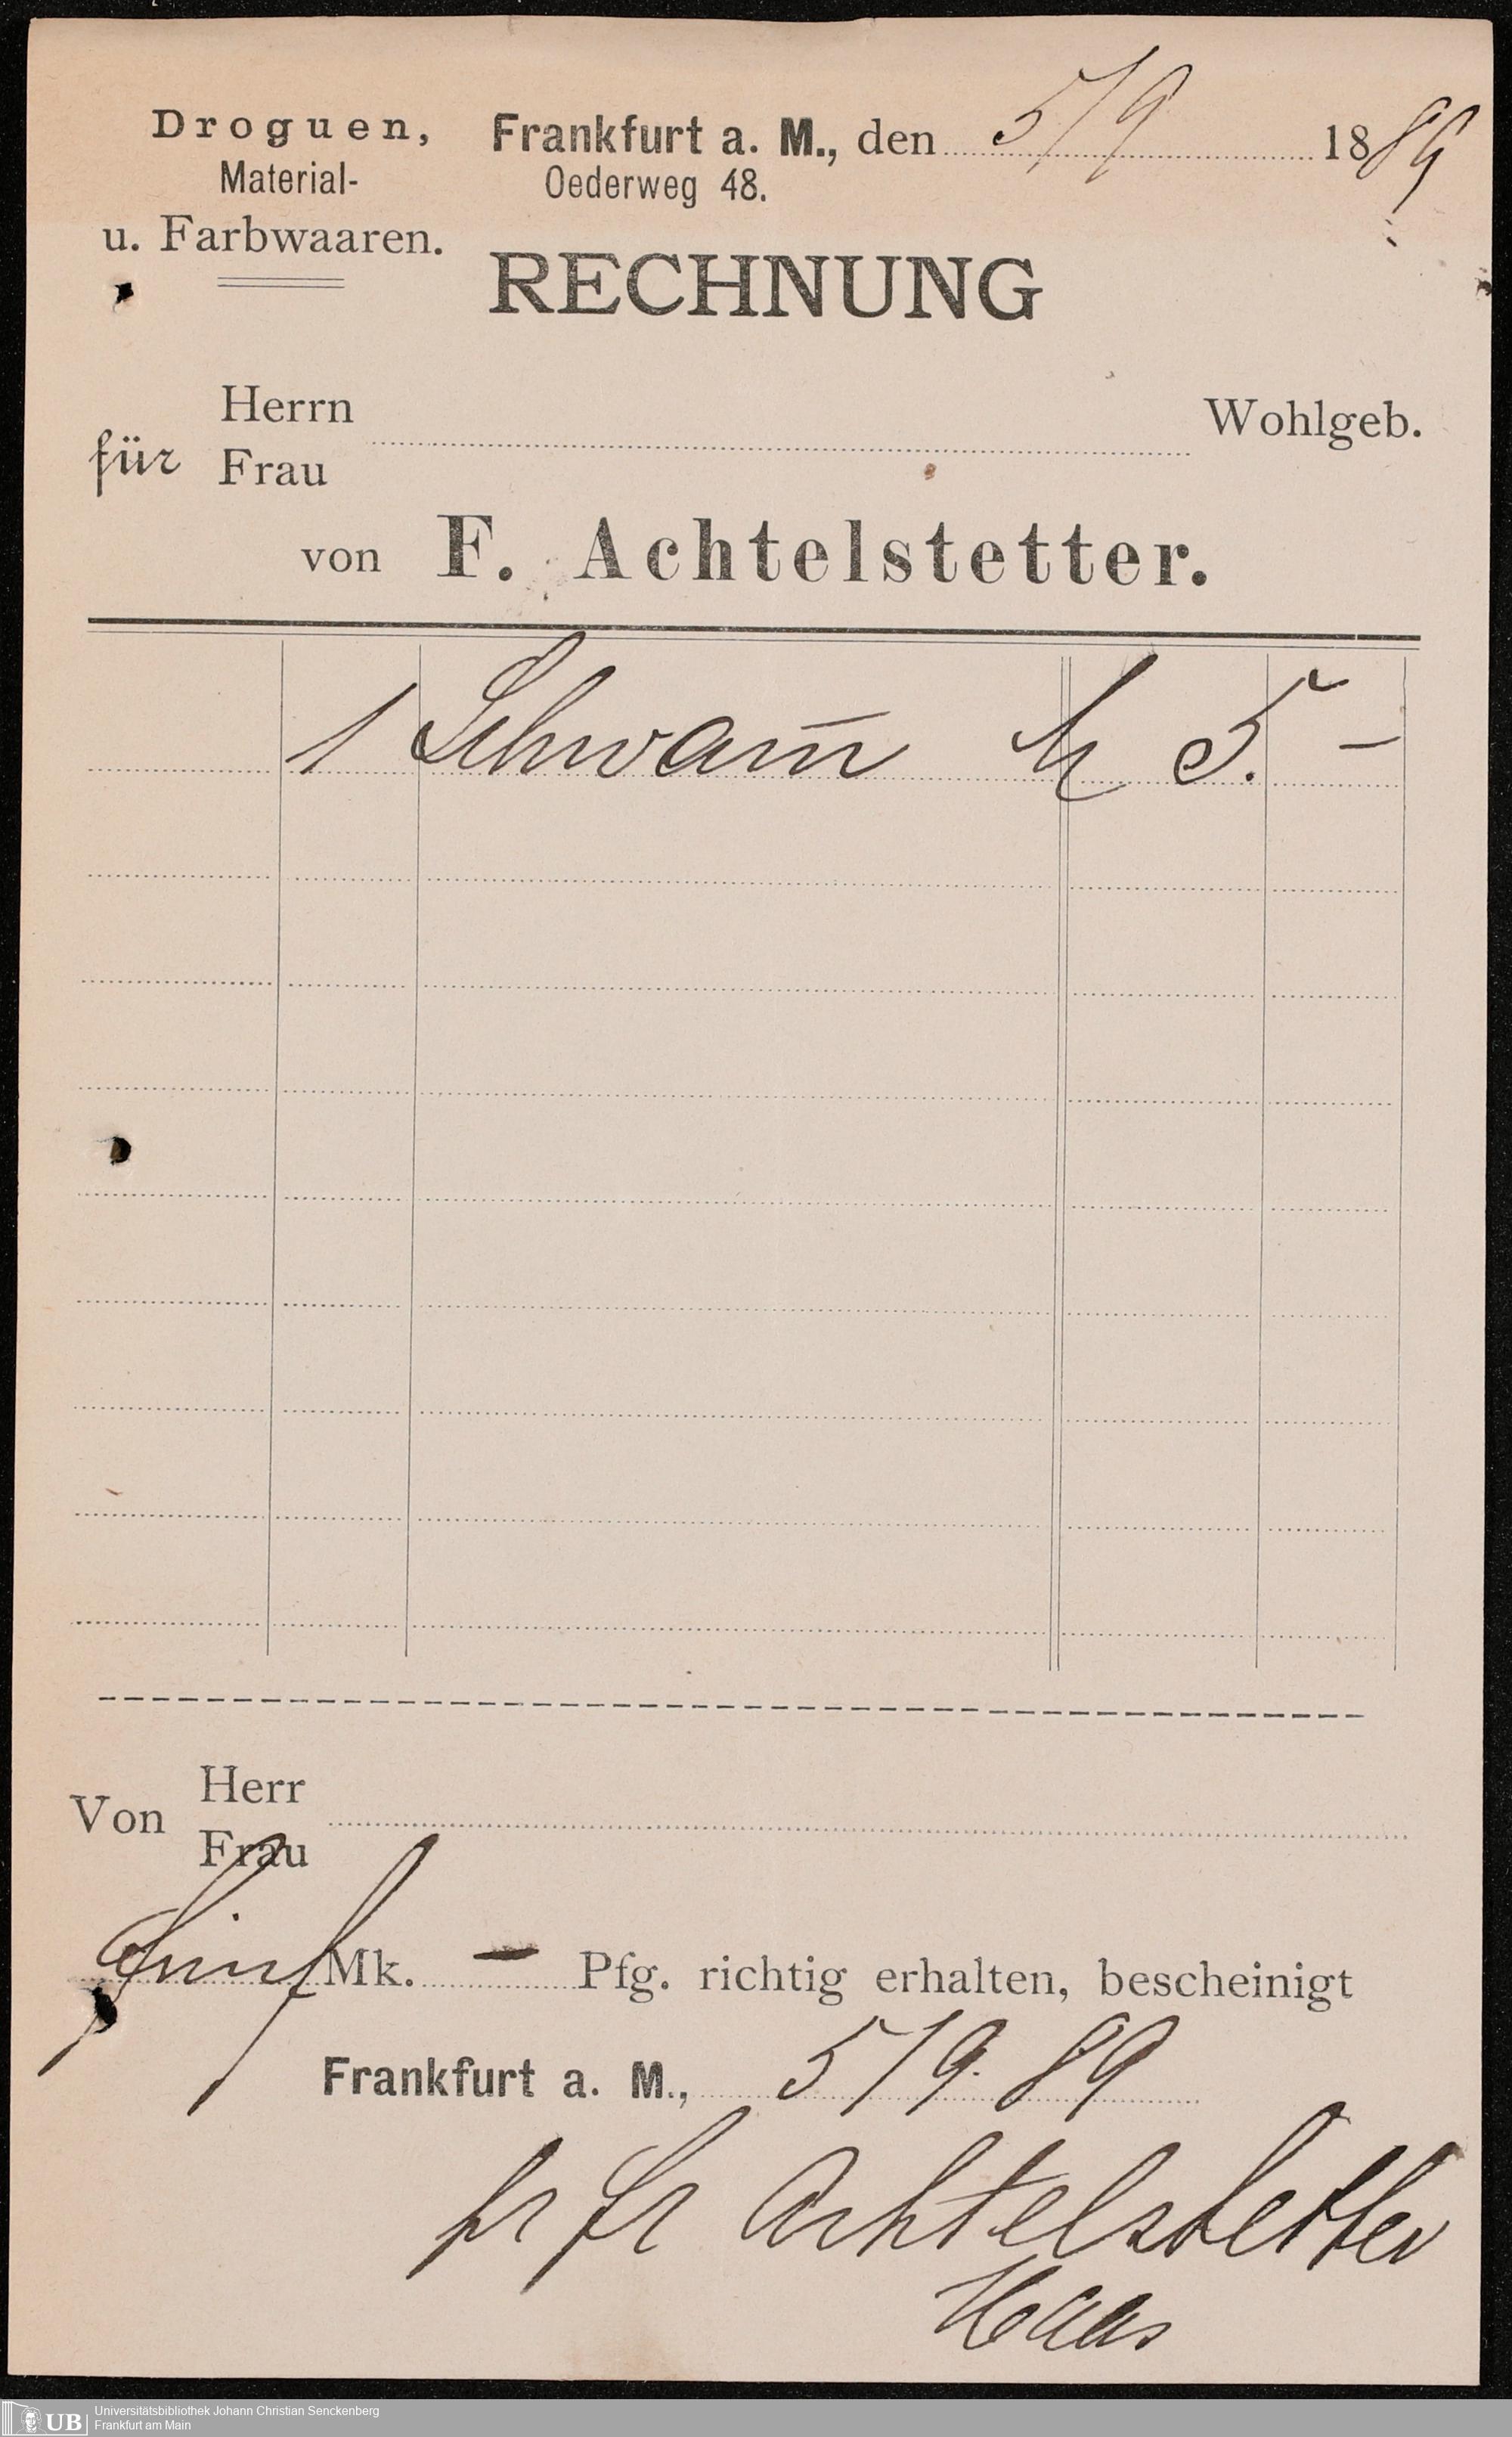 Droguen,
Material-
u. Farbwaaren.
Frankfurt a. M., den 5/9 1889
Oederweg 48.
RECHNUNG
für Herrn
Frau
Wohlgeb.
von F. Achtelstetter.
1 Schwam̅ M 5. –
Von Herr
Frau
Fünf Mk. – Pfg. richtig erhalten, bescheinigt
Frankfurt a. M., 5/9. 89
pr Fr Achtelstetter
Haas
UB
Universitätsbibliothek Johann Christian Senckenberg
Frankfurt am Main